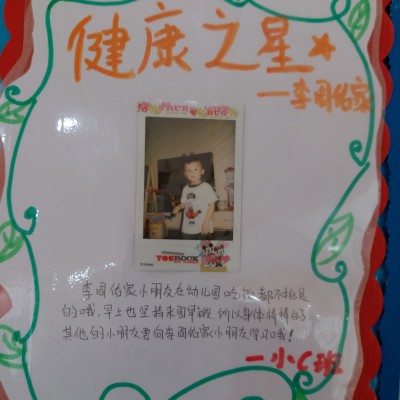 健康之星
一李周佑家
YOU ROCK
李周佑家小朋友在幼儿园吃饭都不挑食
的哦,早上也坚持来园早锻,所以身体棒棒的
其他的小朋友要向李周佑家小朋友学习哦!
一小C班